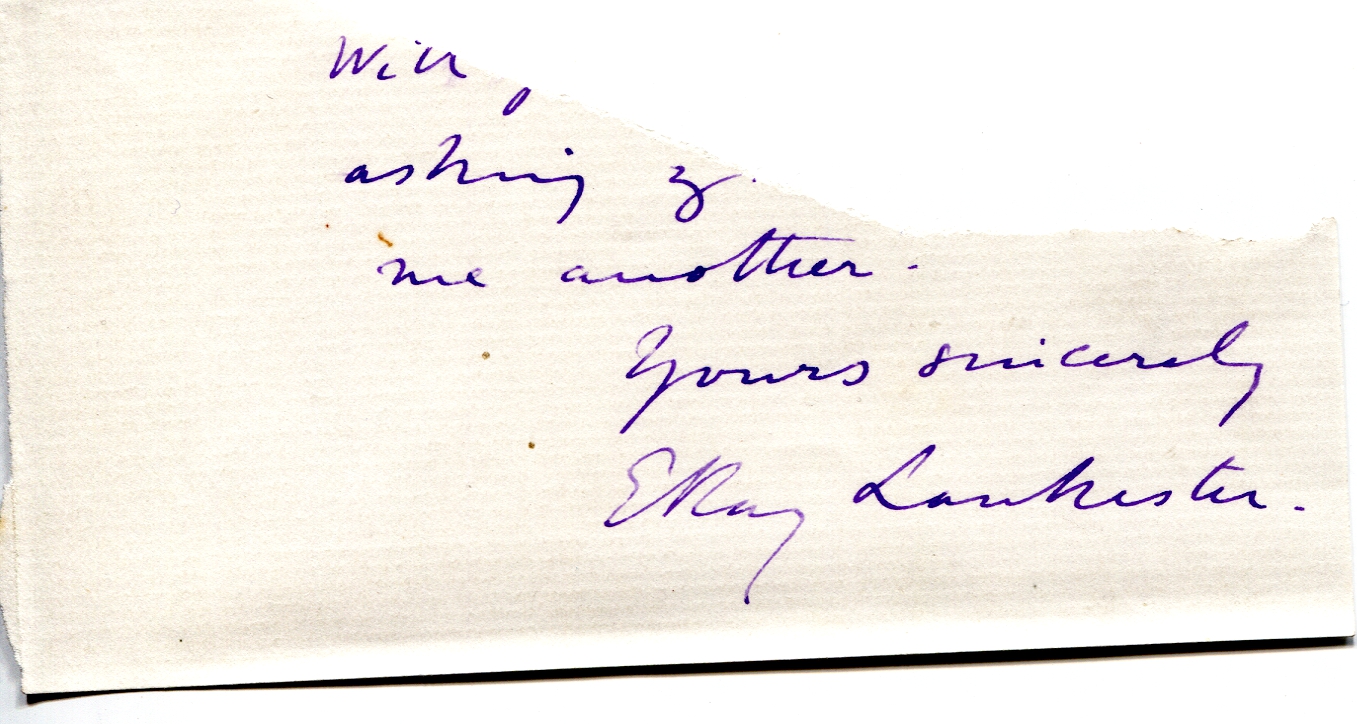 asking
me another.
Yours sincerely
E Ray Lankester.